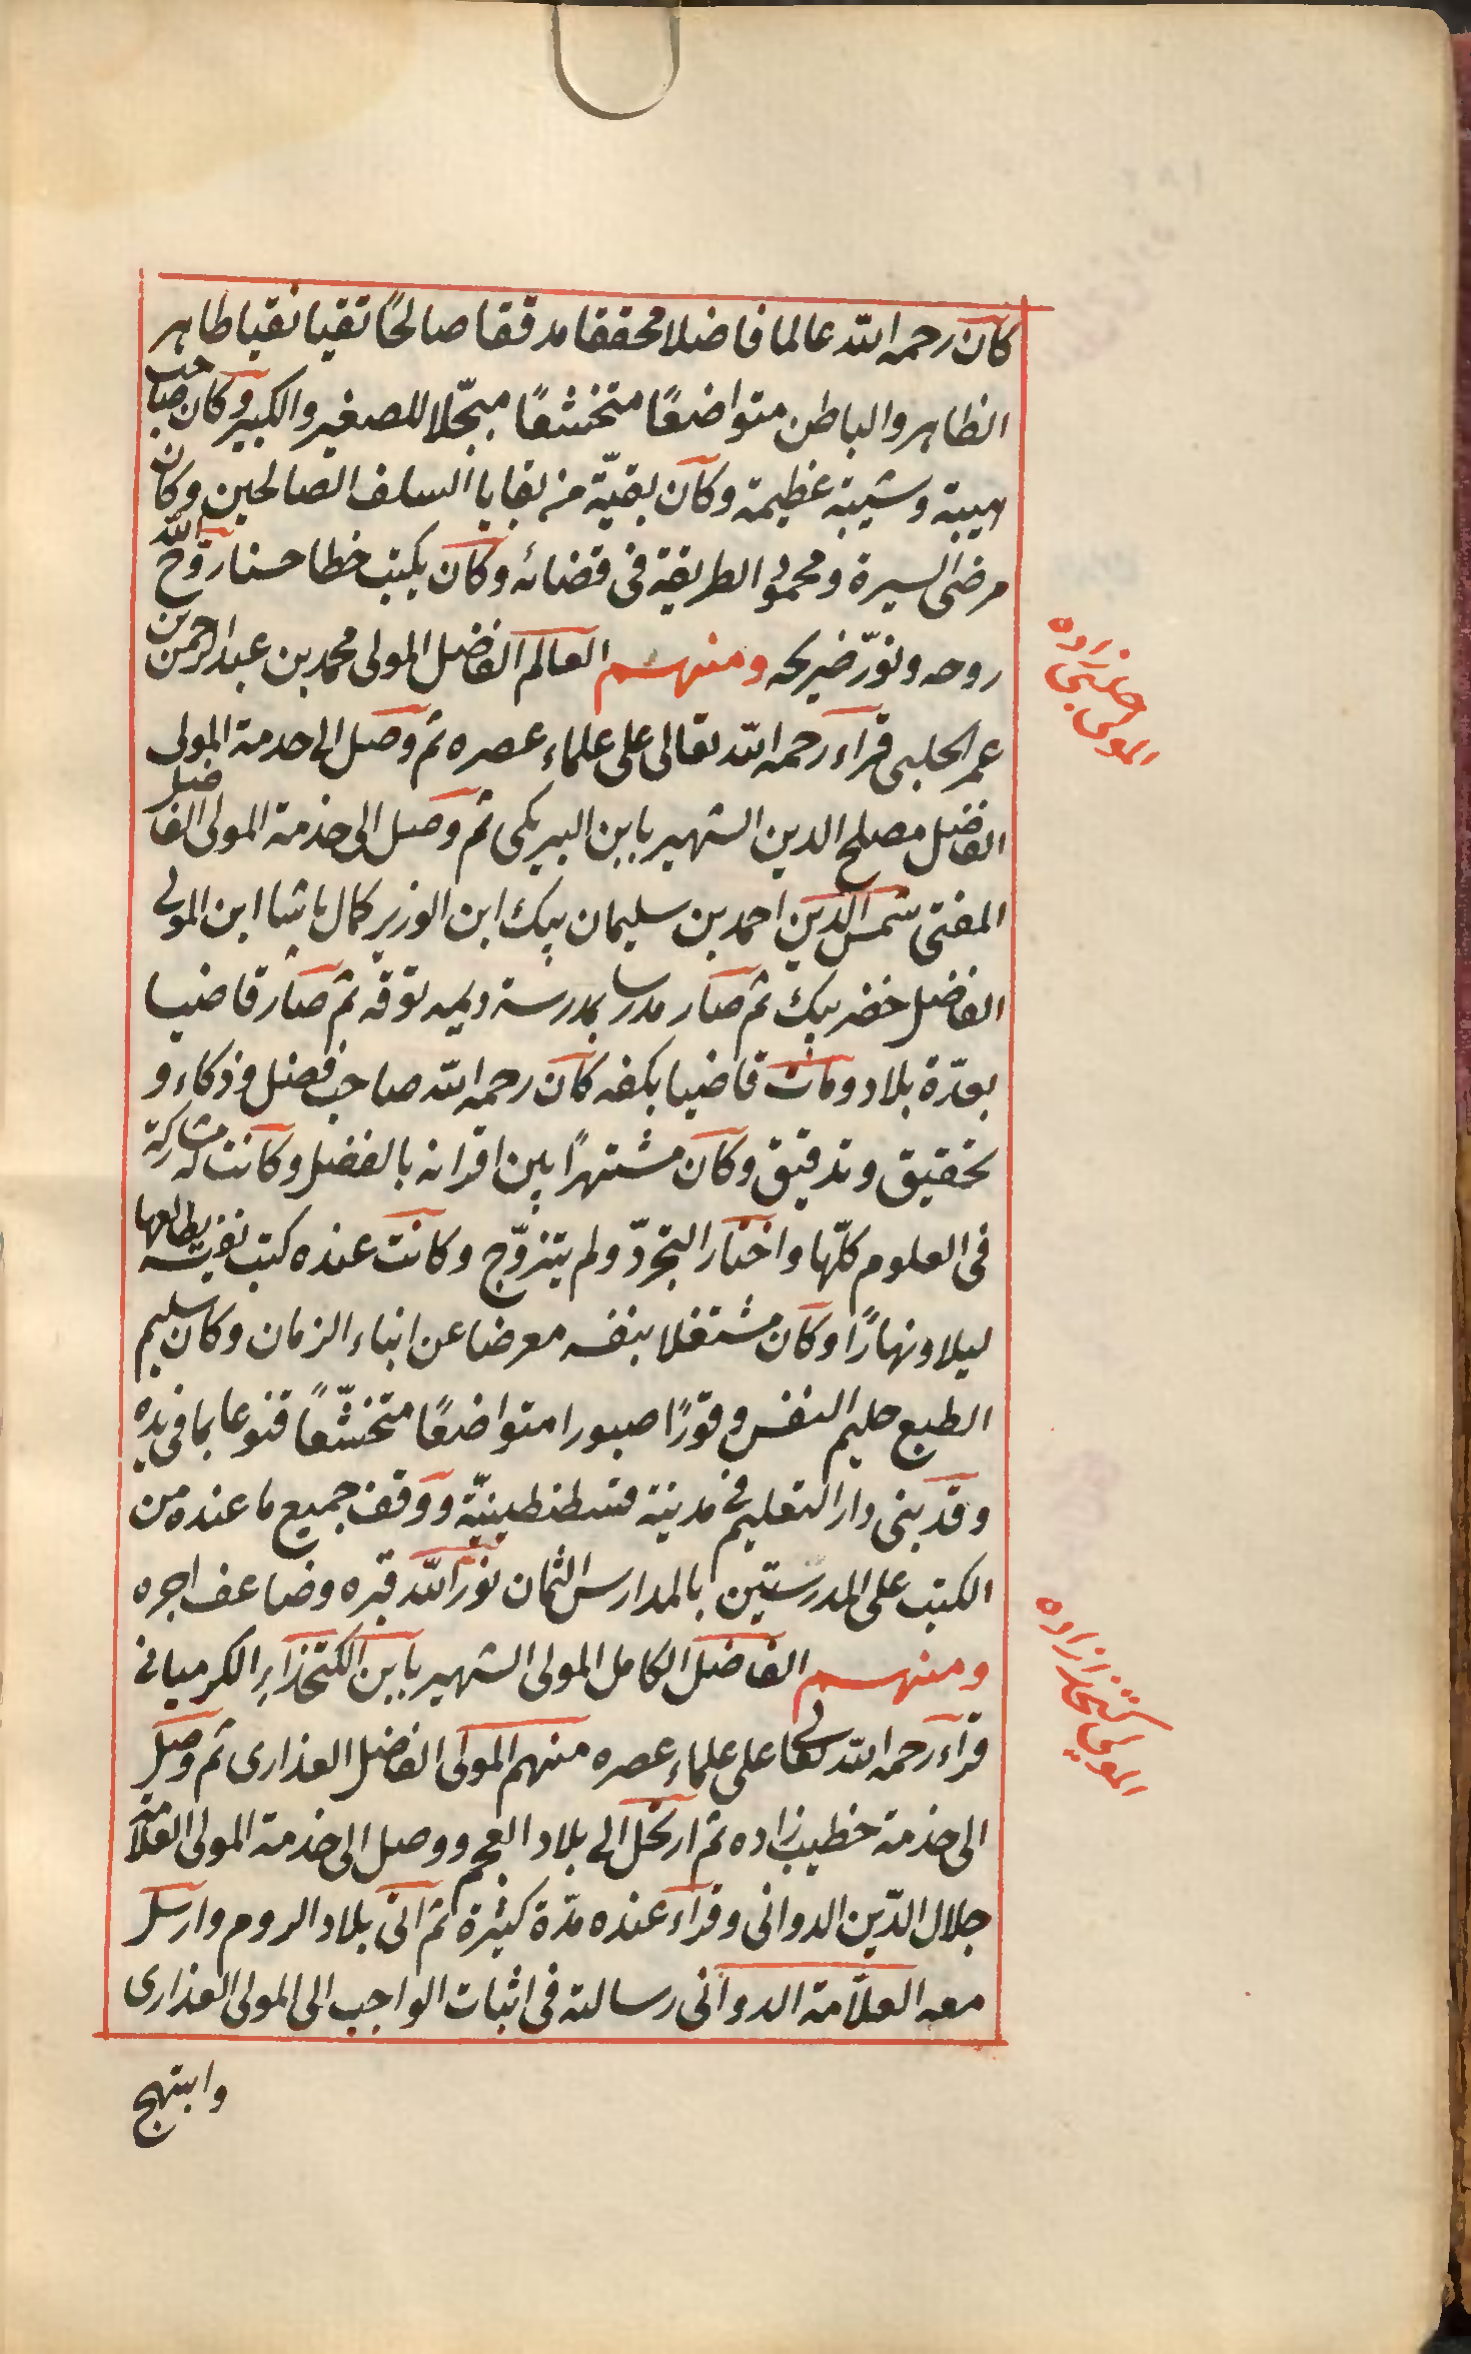 كان رحمه الله عالما فاضلا محققا مدققا صالحًا تقيا نقيا طاهر
الظاهر والباطن متواضعًا متخشعًا مبجّلا للصغير والكبير وكان صاحب
هيبة وشيبة عظيمة وكان بقيّة من بقايا السلف الصالحين وكان
مرضى السيرة ومحمود الطريقة فى قضائه وكان يكتب خطا حسنا روّح الله
روحه ونوّر ضريحه ومنهم العالم الفاضل المولى محمد بن عبد الرحمن بن
عمر الحلبى قراء رحمه الله تعالى على علماء عصره ثم وصل الى خدمة المولى
الفاضل مصلح الدين الشهير بابن البيريكى ثم وصل الى خدمة المولى الفاضل
المفتى شمس الدين احمد بن سليمان بيك ابن الوزير كمال باشا ابن المولى
الفاضل خضر بيك ثم صار مدرسا بمدرسة ديمه توقه ثم صار قاضيا
بعدّة بلاد ومات قاضيا بكفه كان رحمه الله صاحب فضل وذكاء و
تحقيق وتدقيق وكان مشتهرًا بين اقرانه بالفضل وكانت له مشاركة
فى العلوم كلّها واختار التجرّد ولم يتزوّج وكانت عنده كتب نفيسة يطالعها
ليلا ونهارًا وكان مشتغلا بنفسه معرضا عن ابناء الزمان وكان سليم
الطبع حليم النفس وقورًا صبورا متواضعًا متخشّعًا قنوعا بما فى يده
وقد بنى دار التعليم فى مدينة قسطنطينيّة ووقف جميع ما عنده من
الكتب على المدرستين بالمدارس الثمان نوّر الله قبره وضاعف اجره
ومنهم الفاضل الكامل المولى الشهير بابن الكتخدا الكرميانى
قراء رحمه الله تعالى على علماء عصره منهم المولى الفاضل العذارى ثم وصل
الى خدمة خطيب زاده ثم ارتحل الى بلاد العجم ووصل الى خدمة المولى العلامة
جلال الدّين الدوانى وقراء عنده مدّة كثيرة ثم اتى بلاد الروم وارسل
معه العلاّمة الدوانى رسالته فى اثبات الواجب الى المولى العذارى
وابتهج
المولى حلبى زاده
المولى كتخدا زاده